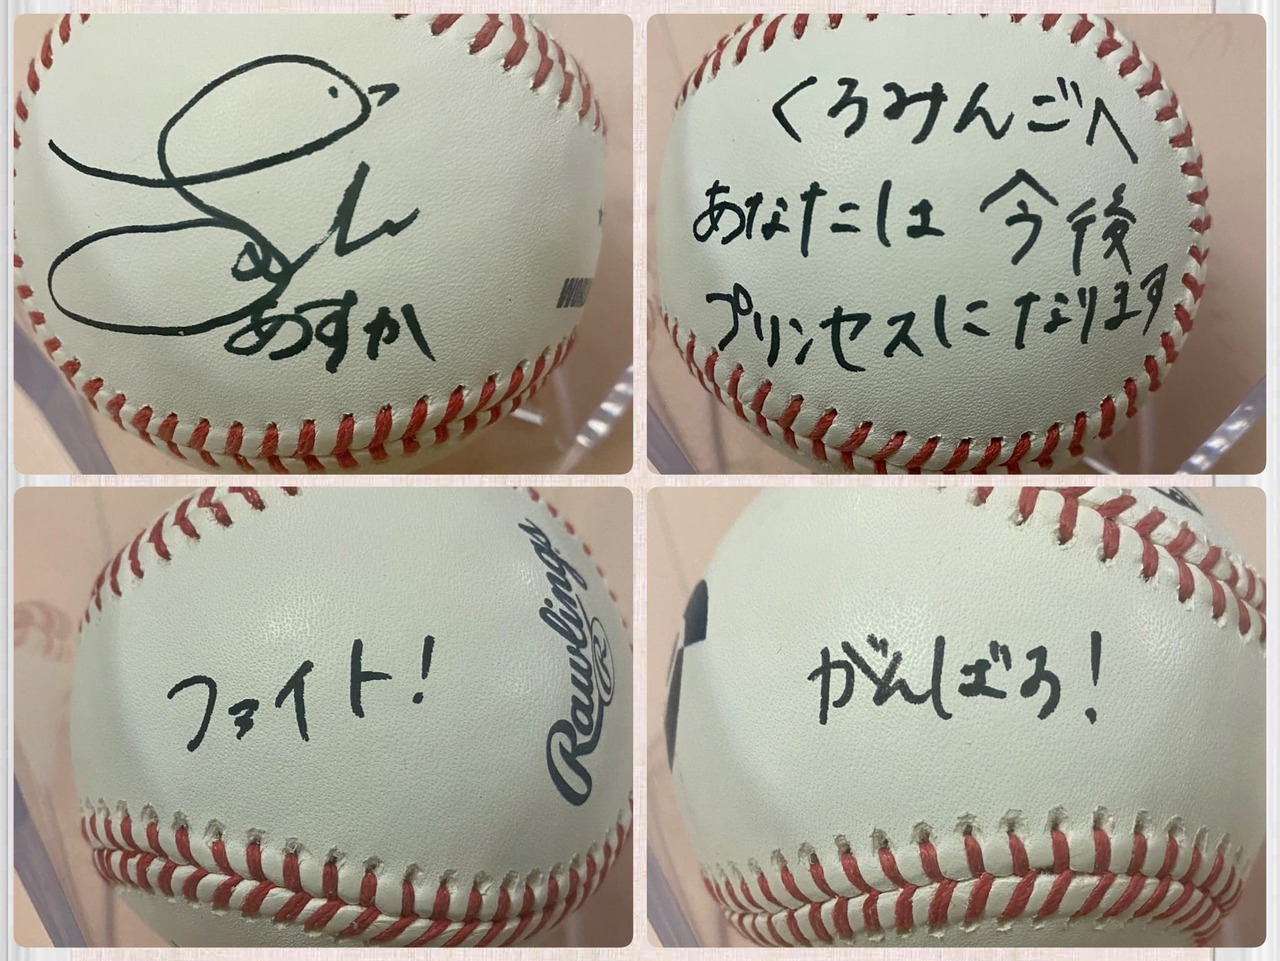 あすか
くろみんごへ
あなたは 今後
プリンセスになります
ファイト!
Rawlings
R
がんばろ!